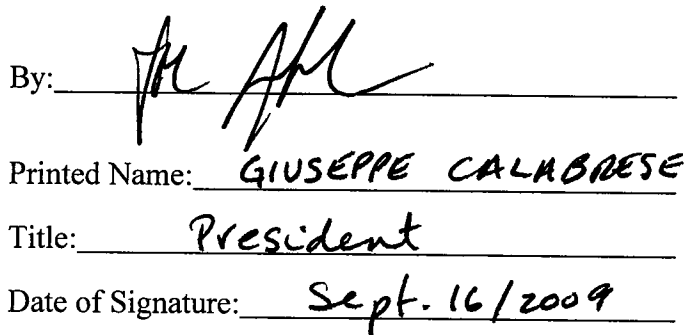 By:
Printed Name: GIUSEPPE CALABRESE
Title: President
Date of Signature: Sept. 16/2009